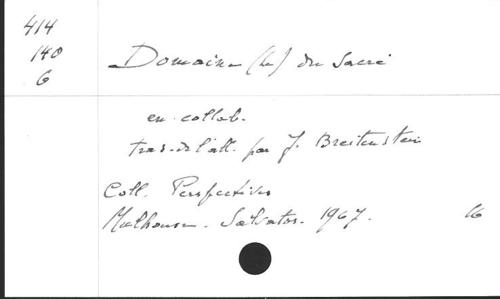 414
140
6
Domaine (le) du Sacré
en collab.
trad. de l'all. par J. Breitenstein
Coll. Perspectives
Mulhouse. Salvator. 1967. 16